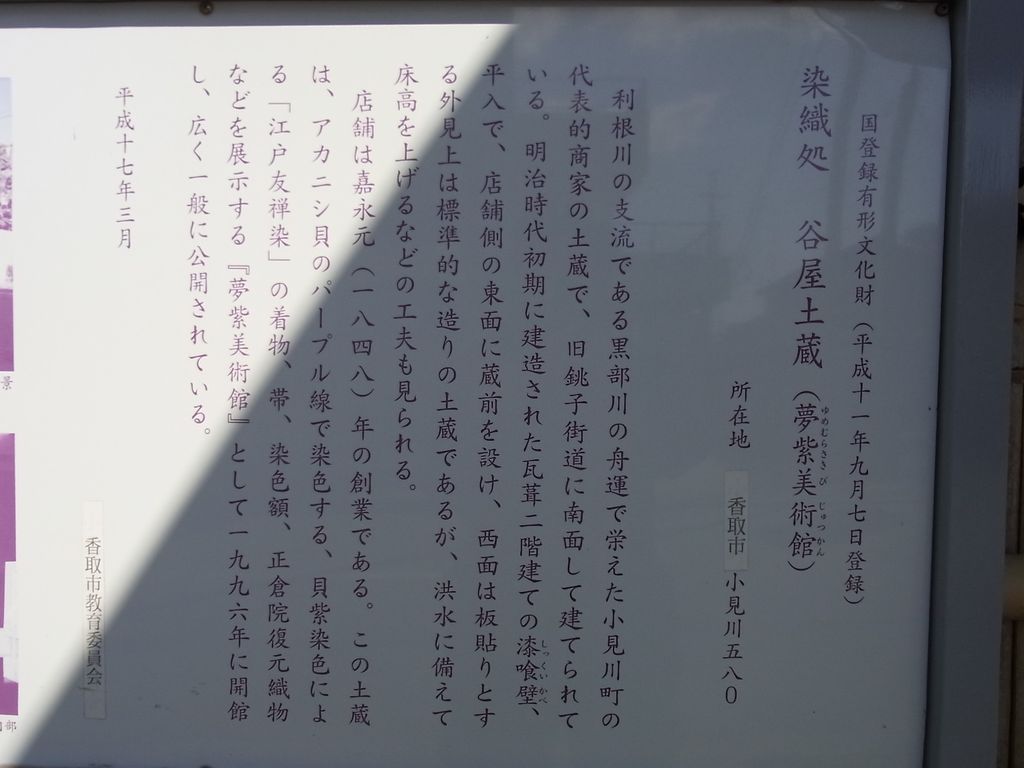 国登録有形文化財（平成十一年九月七日登録）
染織処　谷屋土蔵（夢紫美術館）
ゆめむらさき び じゅつかん
所在地　香取市 小見川五八〇
利根川の支流である黒部川の舟運で栄えた小見川町の
代表的商家の土蔵で、旧銚子街道に南面して建てられて
いる。明治時代初期に建造された瓦葺二階建ての漆喰壁、
しっくいかべ
平入で、店舗側の東面に蔵前を設け、西面は板貼りとす
る外見上は標準的な造りの土蔵であるが、洪水に備えて
床高を上げるなどの工夫も見られる。
店舗は嘉永元（一八四八）年の創業である。この土蔵
は、アカニシ貝のパープル線で染色する、貝紫染色によ
る「江戸友禅染」の着物、帯、染色額、正倉院復元織物
などを展示する『夢紫美術館』として一九九六年に開館
し、広く一般に公開されている。
平成十七年三月
香取市教育委員会
景
部